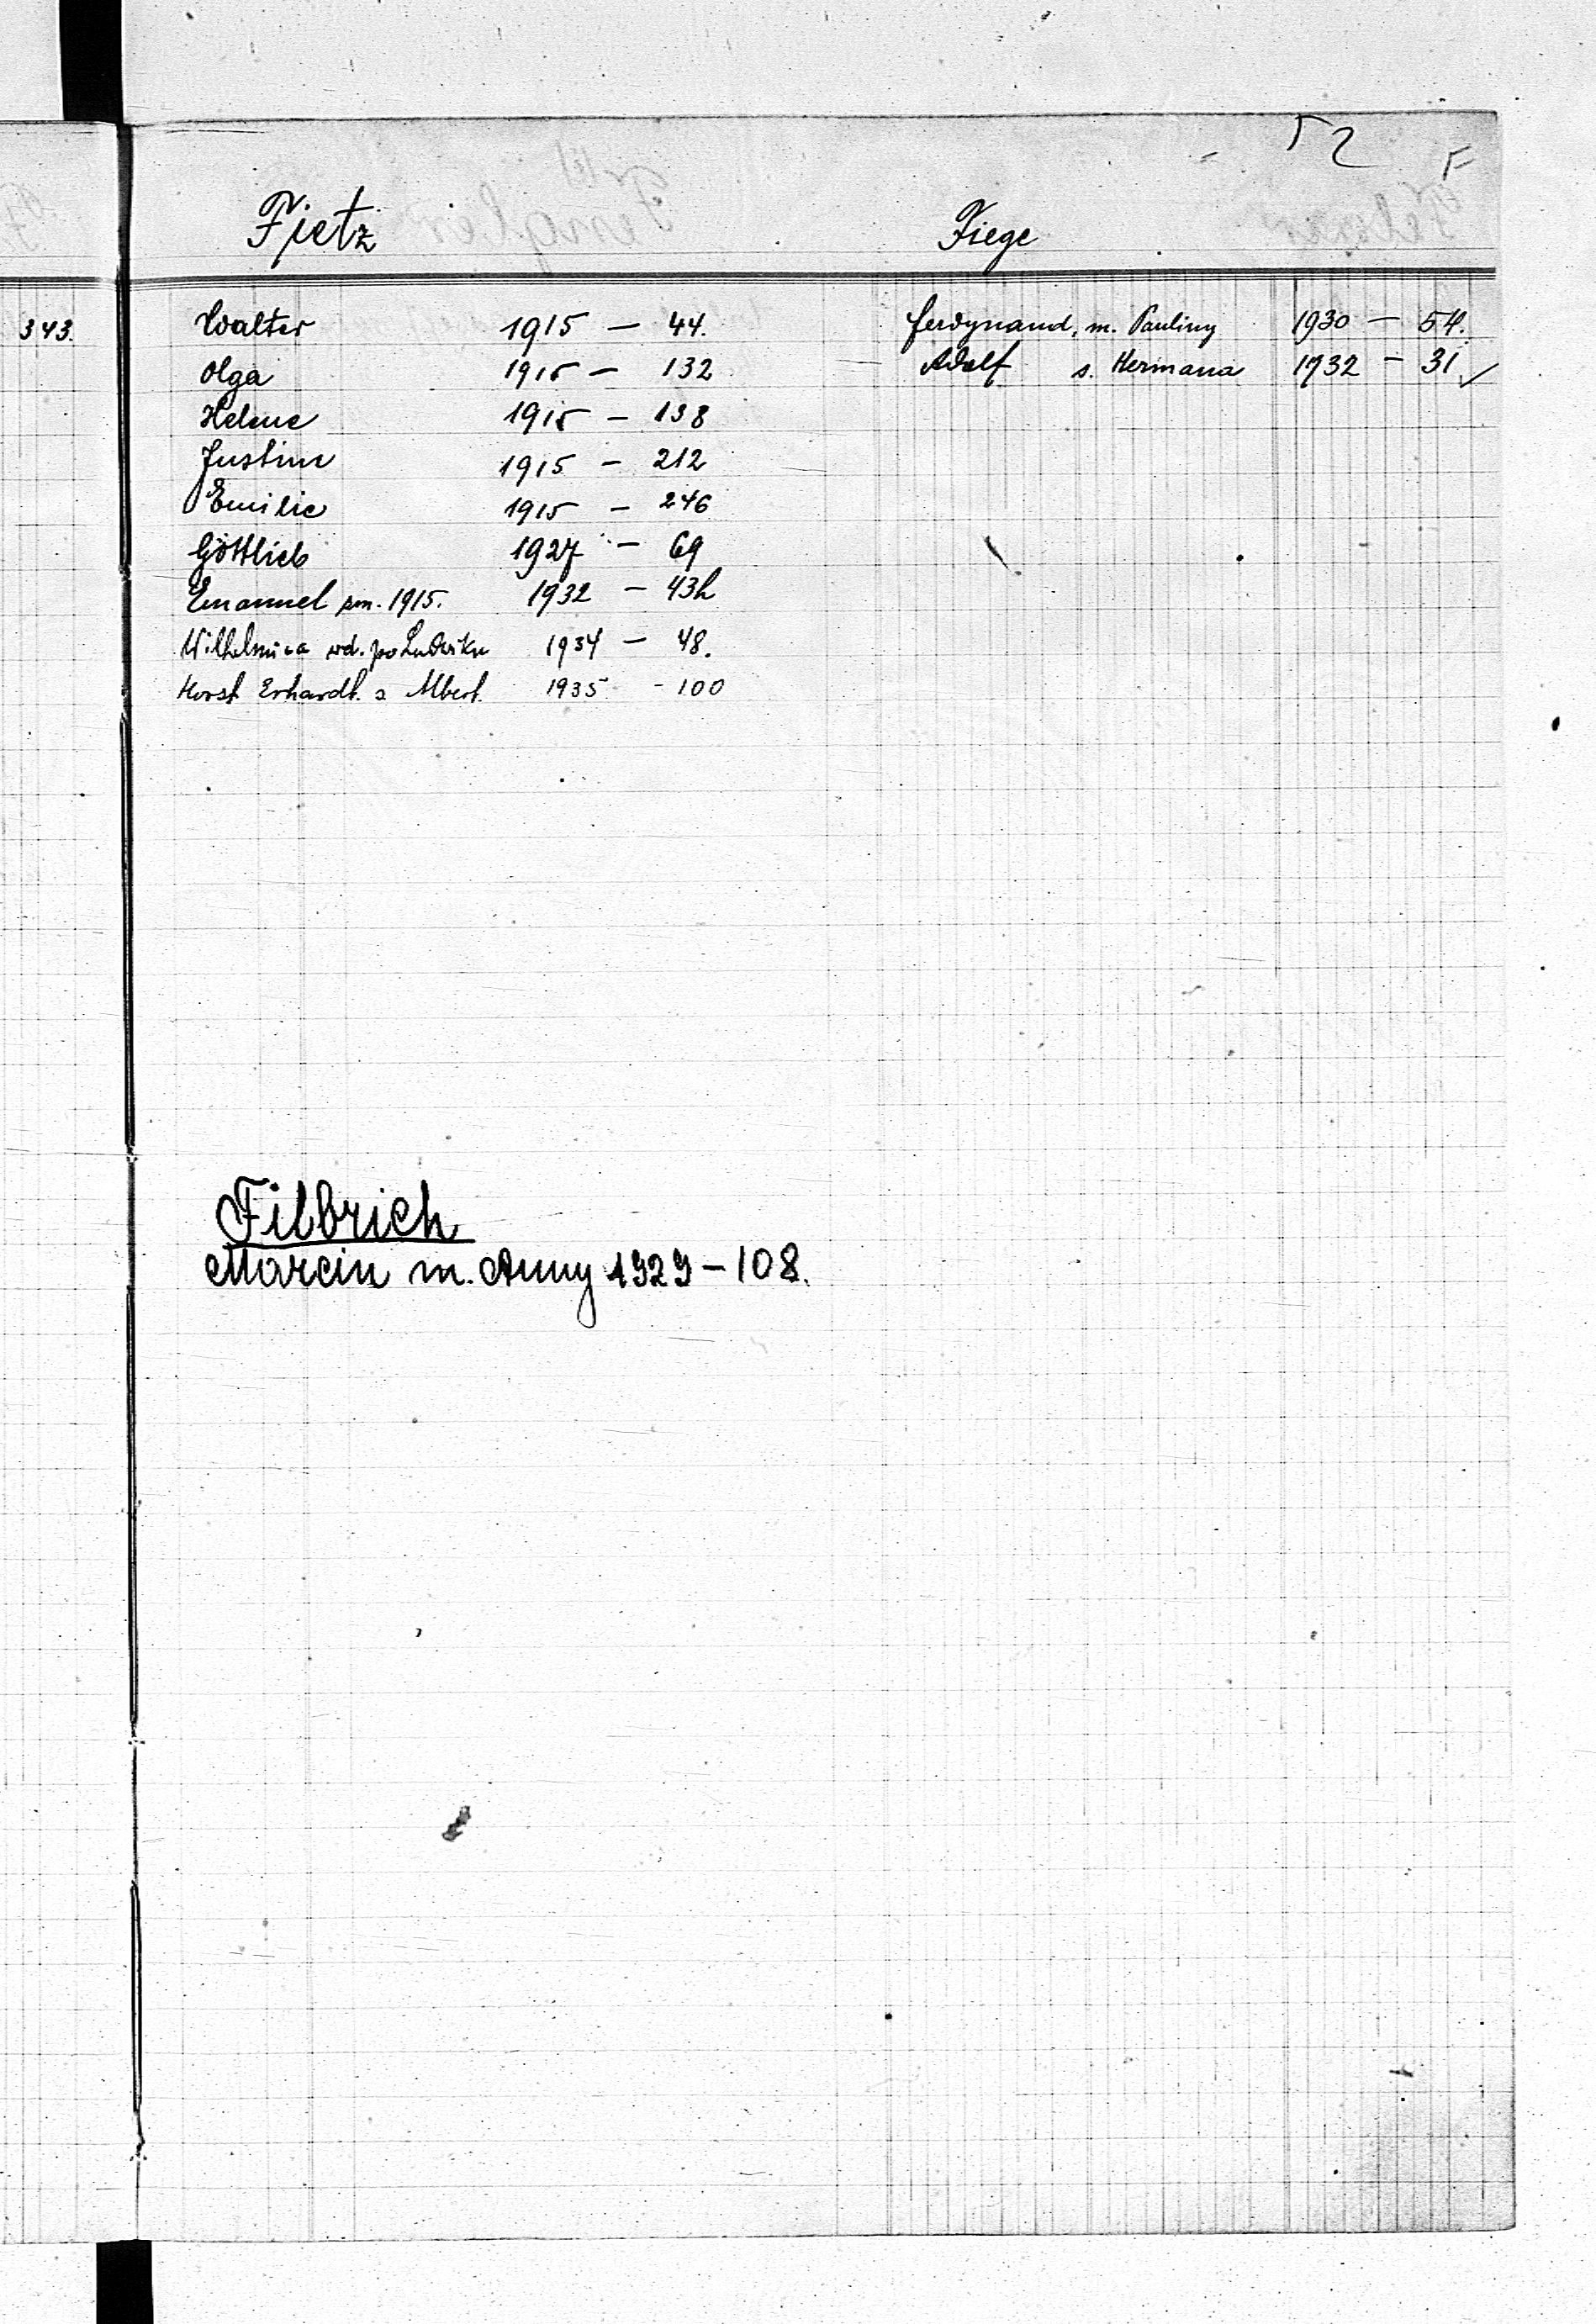 52 F
Fietz
343. Walter 1915 — 44.
Olga 1915 — 132
Helene 1915 — 138
Justine 1915 — 212
Emilie 1915 — 246
Gottlieb 1927 — 69
Emanuel zm. 1915. 1932 — 43h
Wilhelmina wd. po Ludwiku 1934 — 48.
Horst Erhardt s Albert. 1935 - 100
Filbrich
Marcin m. Anny 1929 — 108.
Fiege
Ferdynand, m. Pauliny 1930 — 54.
Adolf s. Hermana 1932 — 31